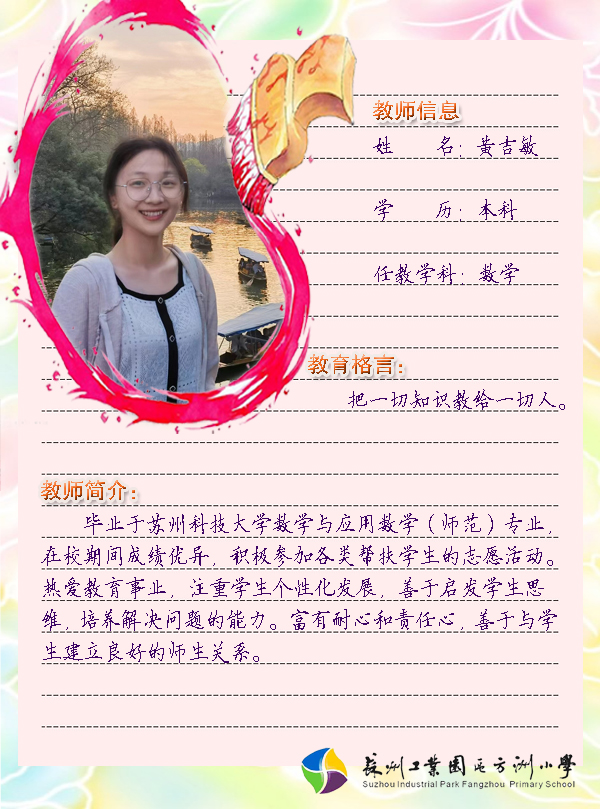 教师信息
姓 名：黄吉敏
学 历：本科
任教学科：数学
教育格言：
把一切知识教给一切人。
教师简介：
毕业于苏州科技大学数学与应用数学（师范）专业，
在校期间成绩优异，积极参加各类帮扶学生的志愿活动。
热爱教育事业，注重学生个性化发展，善于启发学生思
维，培养解决问题的能力。富有耐心和责任心，善于与学
生建立良好的师生关系。
苏州工业园区方洲小学
Suzhou Industrial Park Fangzhou Primary School